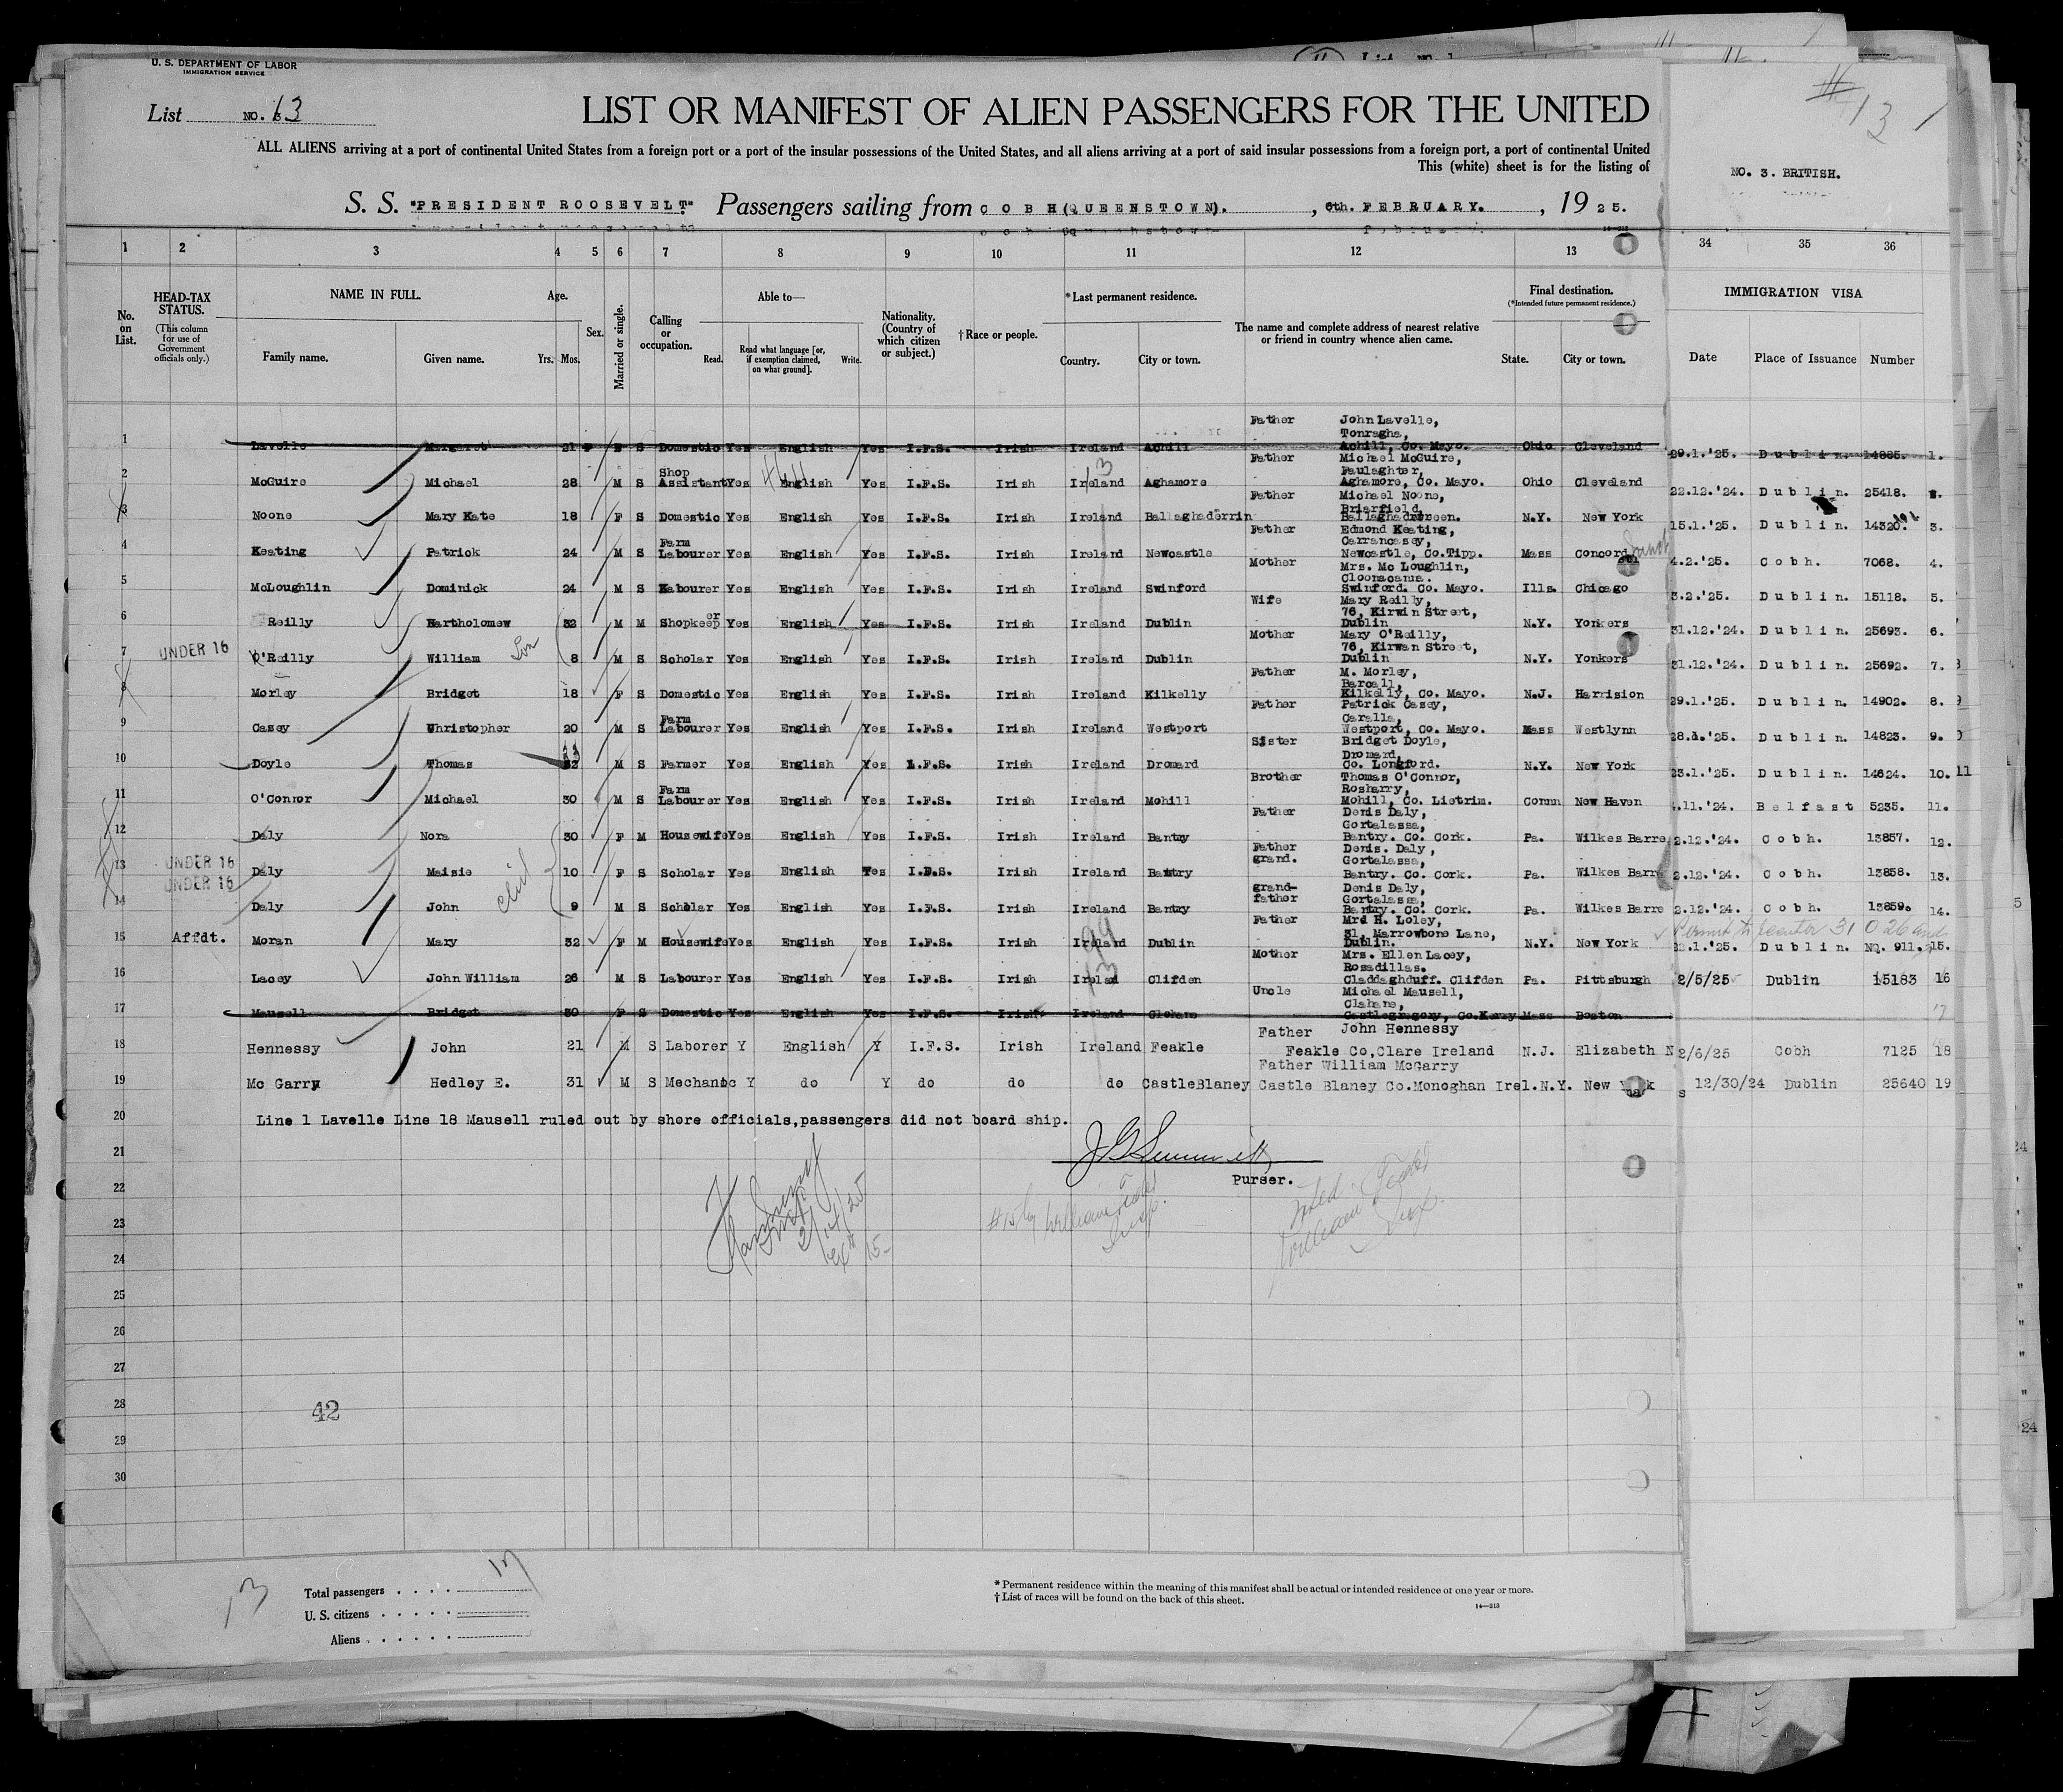 U. S. DEPARTMENT OF LABOR
IMMIGRATION SERVICE
List NO. 13
LIST OR MANIFEST OF ALIEN PASSENGERS FOR THE UNITED
ALL ALIENS arriving at a port of continental United States from a foreign port or a port of the insular possessions of the United States, and all aliens arriving at a port of said insular possessions from a foreign port, a port of continental United
This (white) sheet is for the listing of
13
NO. 3. BRITISH.
S. S. "PRESIDENT ROOSEVELT" Passengers sailing from COBH(QUEENSTOWN). , 6th. FEBRUARY. , 1925.
1 2 3 4 5 6 7 8 9 10 11 12 13 34 35 36
No. on List.
HEAD-TAX STATUS.
(This column for use of Government officials only.)
NAME IN FULL.
Family name. Given name.
Age.
Yrs. Mos.
Sex.
Married or single.
Calling or occupation.
Able to—
Read. Read what language [or, if exemption claimed, on what ground]. Write.
Nationality. (Country of which citizen or subject.)
†Race or people.
*Last permanent residence.
Country. City or town.
The name and complete address of nearest relative or friend in country whence alien came.
Final destination.
(*Intended future permanent residence.)
State. City or town.
IMMIGRATION VISA
Date Place of Issuance Number
1 Lavelle Margaret 21 F S Domestic Yes English Yes I.F.S. Irish Ireland Achill Father John Lavelle, Tonragha, Achill, Co. Mayo. Ohio Cleveland 29.1.'25. Dublin. 14885. 1.
2 McGuire Michael 28 M S Shop Assistant Yes English Yes I.F.S. Irish Ireland Aghamore Father Michael McGuire, Faulaghter, Aghamore, Co. Mayo. Ohio Cleveland 22.12.'24. Dublin. 25418.
3 Noone Mary Kate 18 F S Domestic Yes English Yes I.F.S. Irish Ireland Ballaghaderrin Father Michael Noone, Briarfield, Ballaghadreen. N.Y. New York 15.1.'25. Dublin. 14320. 3.
4 Keating Patrick 24 M S Farm Labourer Yes English Yes I.F.S. Irish Ireland Newcastle Father Edmond Keating, Carrancasey, Newcastle, Co.Tipp. Mass Concord 4.2.'25. Cobh. 7068. 4.
5 McLoughlin Dominick 24 M S Labourer Yes English Yes I.F.S. Irish Ireland Swinford Mother Mrs. Mc Loughlin, Cloonacanna. Swinford. Co. Mayo. Ills. Chicago 3.2.'25. Dublin. 15118. 5.
6 Reilly Bartholomew 32 M M Shopkeeper Yes English Yes I.F.S. Irish Ireland Dublin Wife Mary Reilly, 76, Kirwin Street, Dublin N.Y. Yonkers 31.12.'24. Dublin. 25693. 6.
7 UNDER 16 O'Reilly William Son 8 M S Scholar Yes English Yes I.F.S. Irish Ireland Dublin Mother Mary O'Reilly, 76, Kirwan Street, Dublin N.Y. Yonkers 31.12.'24. Dublin. 25692. 7.
8 Morley Bridget 18 F S Domestic Yes English Yes I.F.S. Irish Ireland Kilkelly Father M. Morley, Barcall, Kilkelly, Co. Mayo. N.J. Harrision 29.1.'25. Dublin. 14902. 8.
9 Casey Christopher 20 M S Farm Labourer Yes English Yes I.F.S. Irish Ireland Westport Father Patrick Casey, Caralla, Westport, Co. Mayo. Mass Westlynn 28.1.'25. Dublin. 14823. 9.
10 Doyle Thomas 32 M S Farmer Yes English Yes I.F.S. Irish Ireland Dromard Sister Bridget Doyle, Dromard, Co. Longford. N.Y. New York 23.1.'25. Dublin. 14624. 10.
11 O'Connor Michael 30 M S Farm Labourer Yes English Yes I.F.S. Irish Ireland Mohill Brother Thomas O'Connor, Rosharry, Mohill, Co. Lietrim. Conn New Haven .11.'24. Belfast 5235. 11.
12 Daly Nora 30 F M Housewife Yes English Yes I.F.S. Irish Ireland Bantry Father Denis Daly, Gortalassa, Bantry. Co. Cork. Pa. Wilkes Barre 2.12.'24. Cobh. 13857. 12.
13 UNDER 16 Daly Maisie 10 F S Scholar Yes English Yes I.F.S. Irish Ireland Bantry Father grand. Denis. Daly, Gortalassa, Bantry. Co. Cork. Pa. Wilkes Barre 2.12.'24. Cobh. 13858. 13.
14 UNDER 16 Daly John 9 M S Scholar Yes English Yes I.F.S. Irish Ireland Bantry grand-father Denis Daly, Gortalassa, Bantry. Co. Cork. Pa. Wilkes Barre 2.12.'24. Cobh. 13859. 14.
15 Affdt. Moran Mary 32 F M Housewife Yes English Yes I.F.S. Irish Ireland Dublin Father Mrd H. Loley, 31, Marrowbone Lane, Dublin. N.Y. New York 22.1.'25. Dublin. No. 911. 15.
16 Lacey John William 26 M S Labourer Yes English Yes I.F.S. Irish Ireland Clifden Mother Mrs. Ellen Lacey, Rosadillas. Claddaghduff. Clifden Pa. Pittsburgh 2/5/25 Dublin 15183 16
17 Mausell Bridget 30 F S Domestic Yes English Yes I.F.S. Irish Ireland Clahane Uncle Michael Mausell, Clahane, Castlegregory, Co.Kerry Mass Boston 17
18 Hennessy John 21 M S Laborer Y English Y I.F.S. Irish Ireland Feakle Father John Hennessy Feakle Co,Clare Ireland N.J. Elizabeth N 2/6/25 Cobh 7125 18
19 Mc Garry Hedley E. 31 M S Mechanic Y do Y do do do CastleBlaney Father William McGarry Castle Blaney Co.Monoghan Irel. N.Y. New York 12/30/24 Dublin 25640 19
20 Line 1 Lavelle Line 18 Mausell ruled out by shore officials,passengers did not board ship.
21
Purser.
22
23
24
25
26
27
28
42
29
30
13
Total passengers . . . . 17
U. S. citizens . . . . .
Aliens . . . . . .
* Permanent residence within the meaning of this manifest shall be actual or intended residence of one year or more.
† List of races will be found on the back of this sheet.
14—213